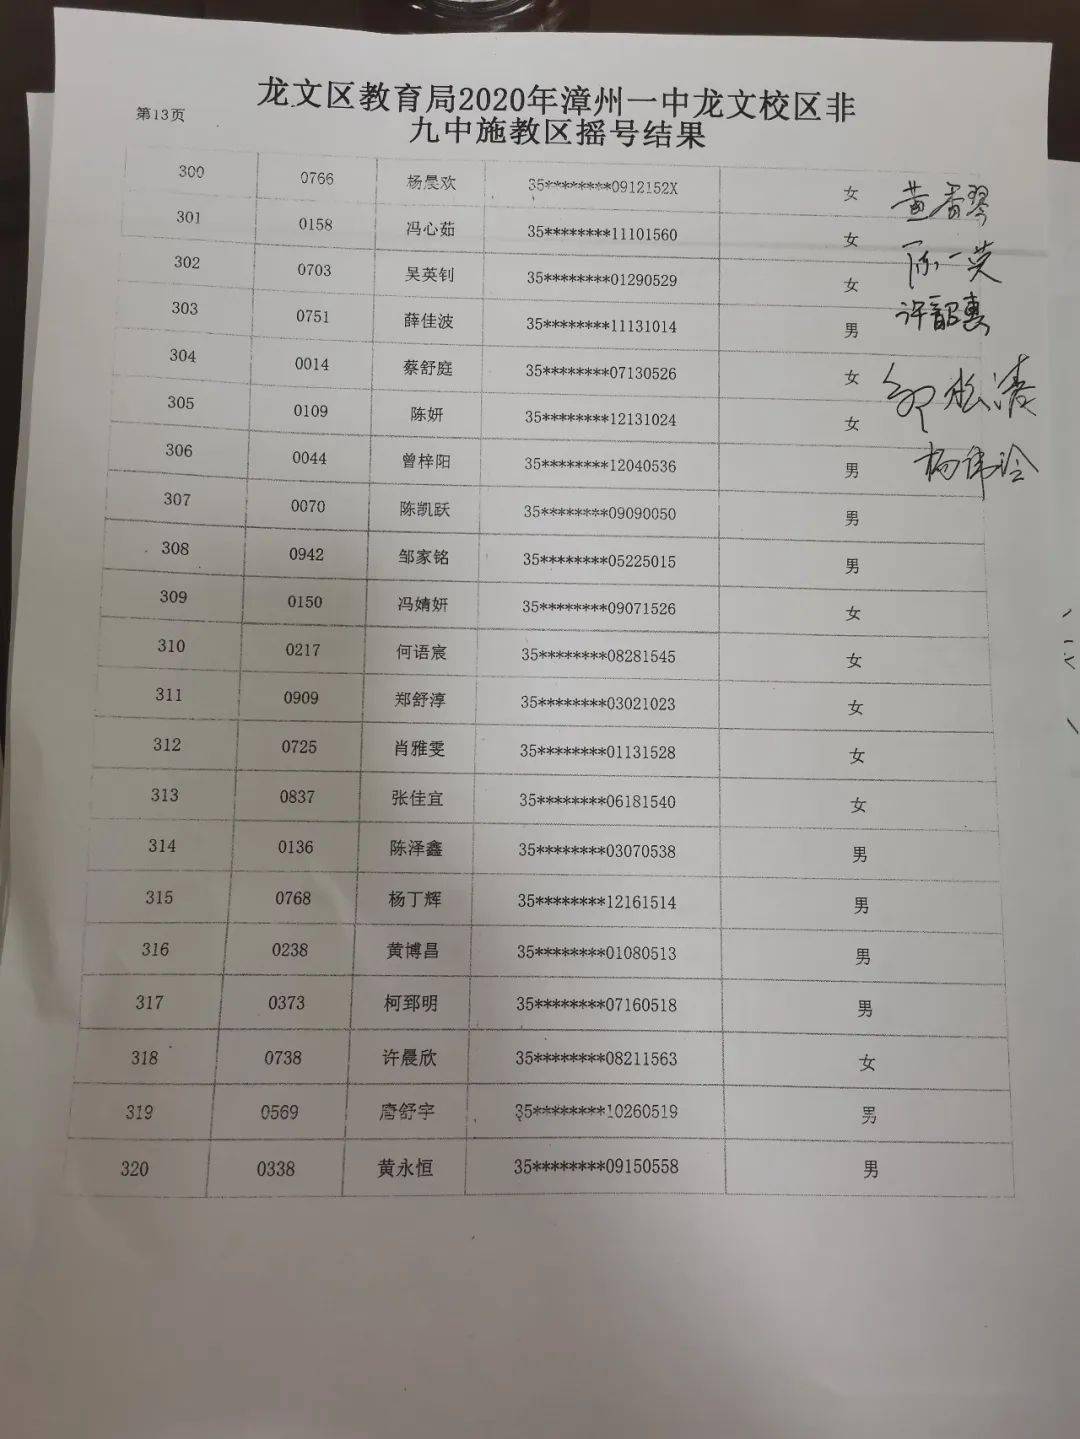 第13页
龙文区教育局2020年漳州一中龙文校区非
九中施教区摇号结果
300 0766 杨晨欢 35********0912152X 女
301 0158 冯心茹 35********11101560 女
302 0703 吴英钊 35********01290529 女
303 0751 薛佳波 35********11131014 男
304 0014 蔡舒庭 35********07130526 女
305 0109 陈妍 35********12131024 女
306 0044 曾梓阳 35********12040536 男
307 0070 陈凯跃 35********09090050 男
308 0942 邹家铭 35********05225015 男
309 0150 冯婧妍 35********09071526 女
310 0217 何语宸 35********08281545 女
311 0909 郑舒淳 35********03021023 女
312 0725 肖雅雯 35********01131528 女
313 0837 张佳宜 35********06181540 女
314 0136 陈泽鑫 35********03070538 男
315 0768 杨丁辉 35********12161514 男
316 0238 黄博昌 35********01080513 男
317 0373 柯郅明 35********07160518 男
318 0738 许晨欣 35********08211563 女
319 0569 唐舒宇 35********10260519 男
320 0338 黄永恒 35********09150558 男
黄香琴
陈一英
许韶惠
杨伟玲